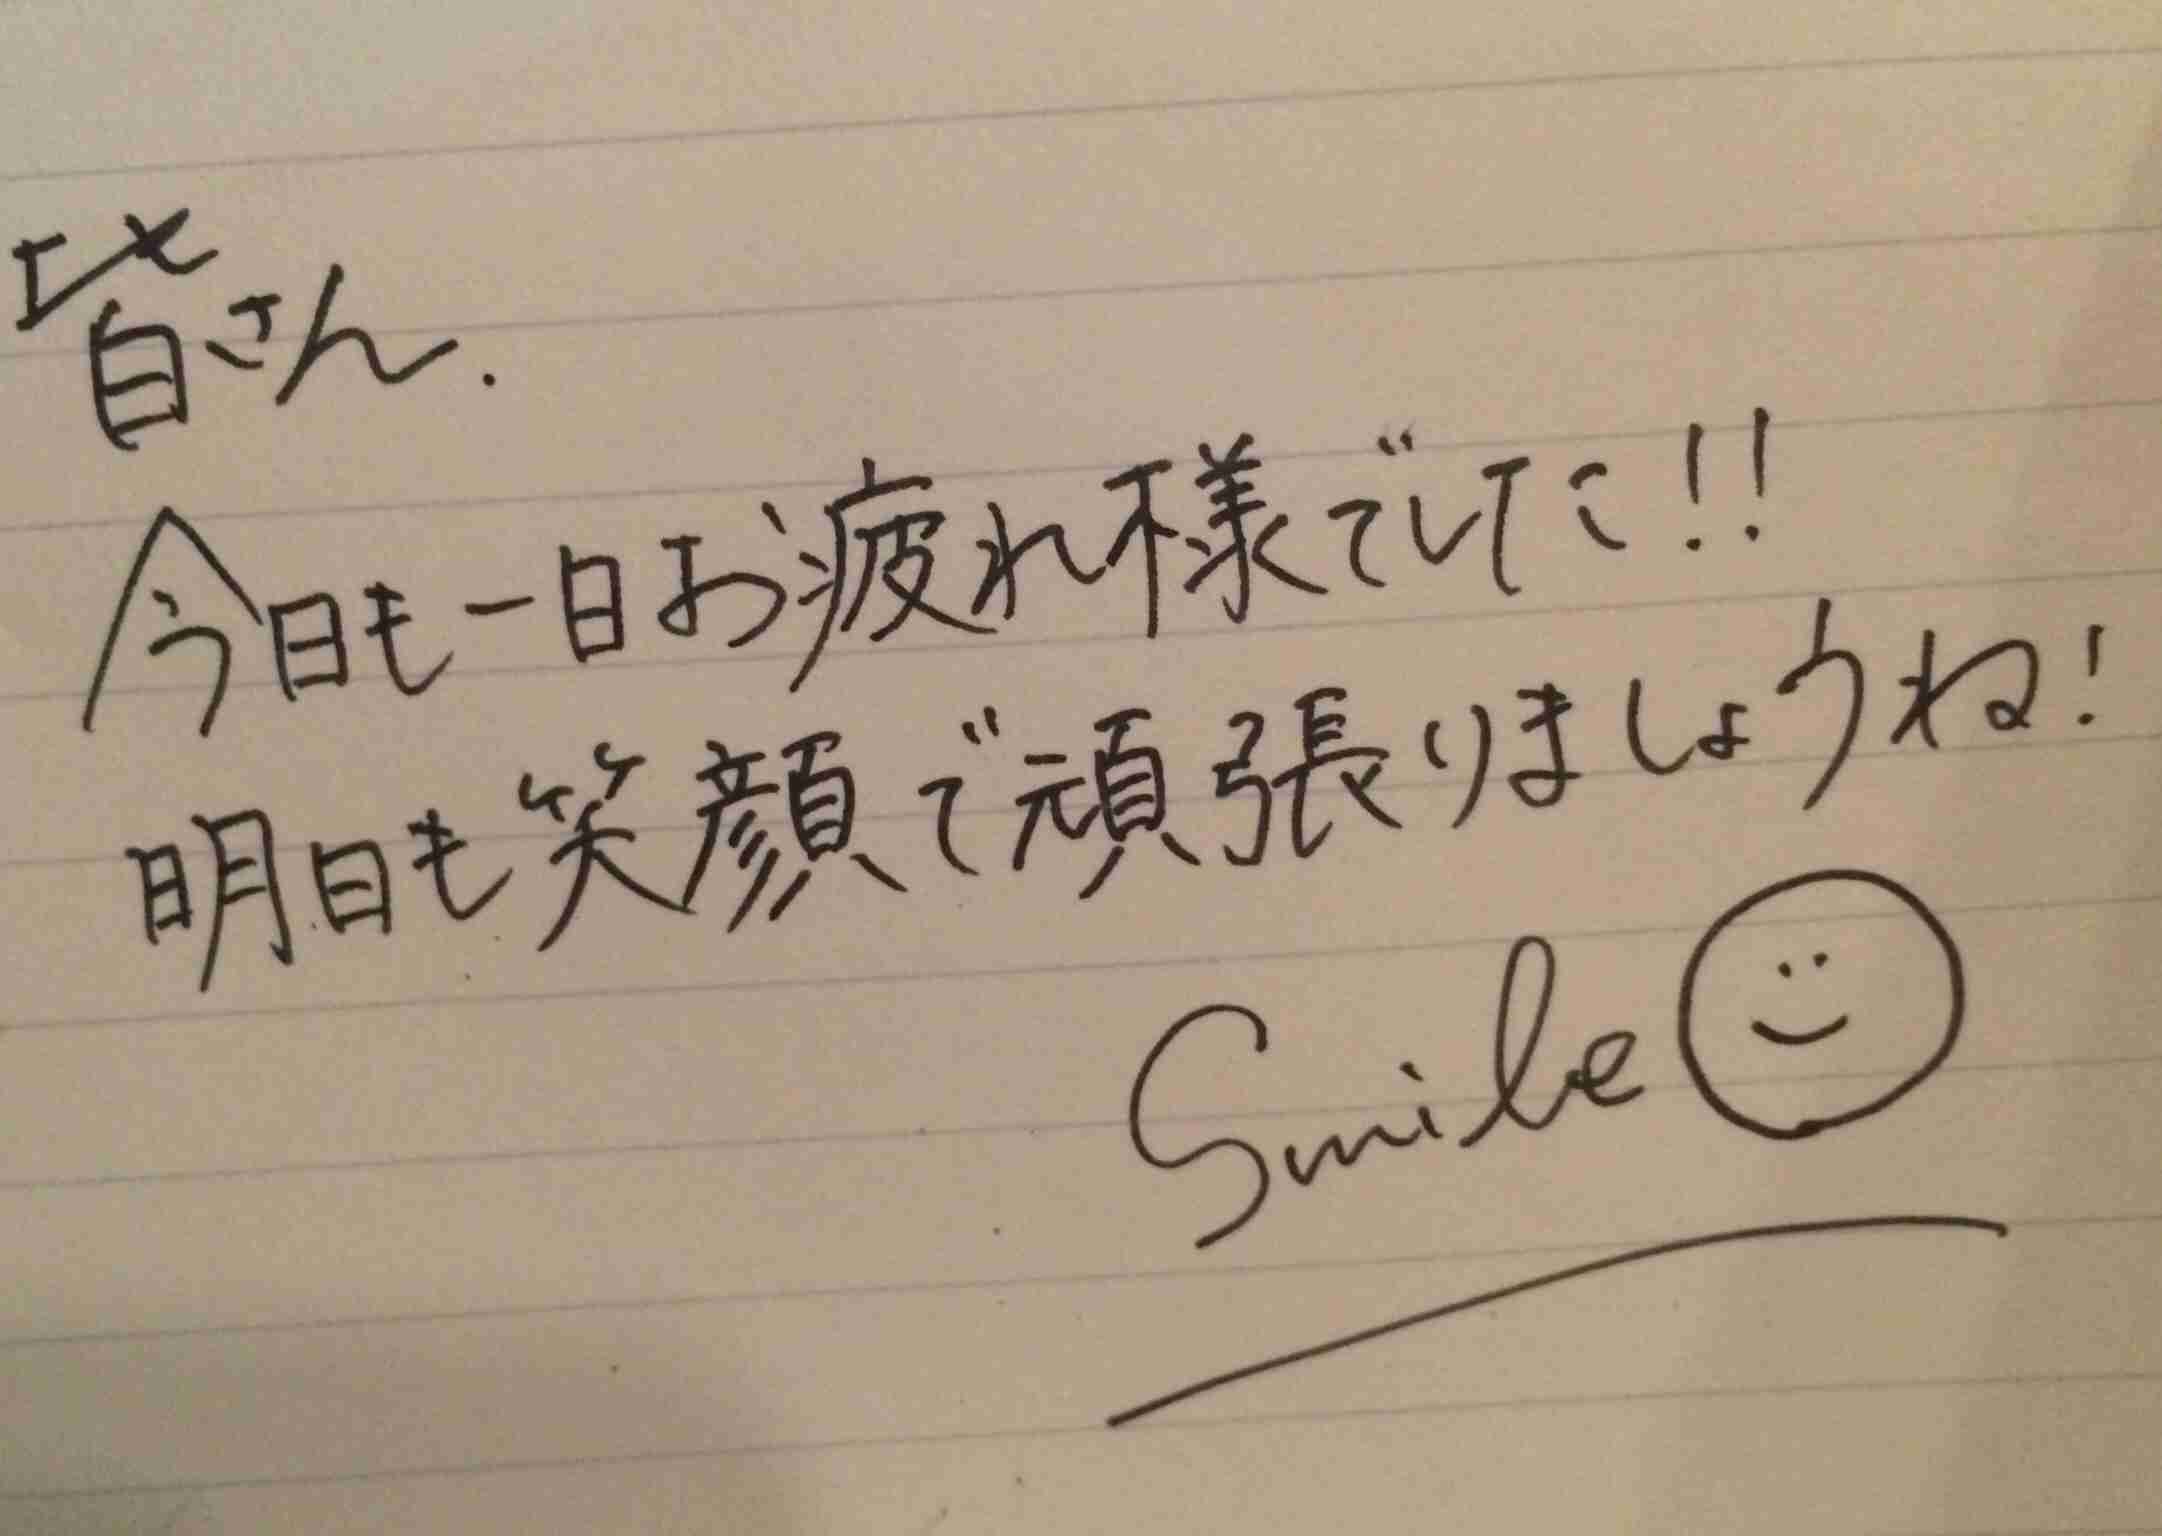 皆さん.
今日も一日お疲れ様でした!!
明日も笑顔で頑張りましょうね!
Smile